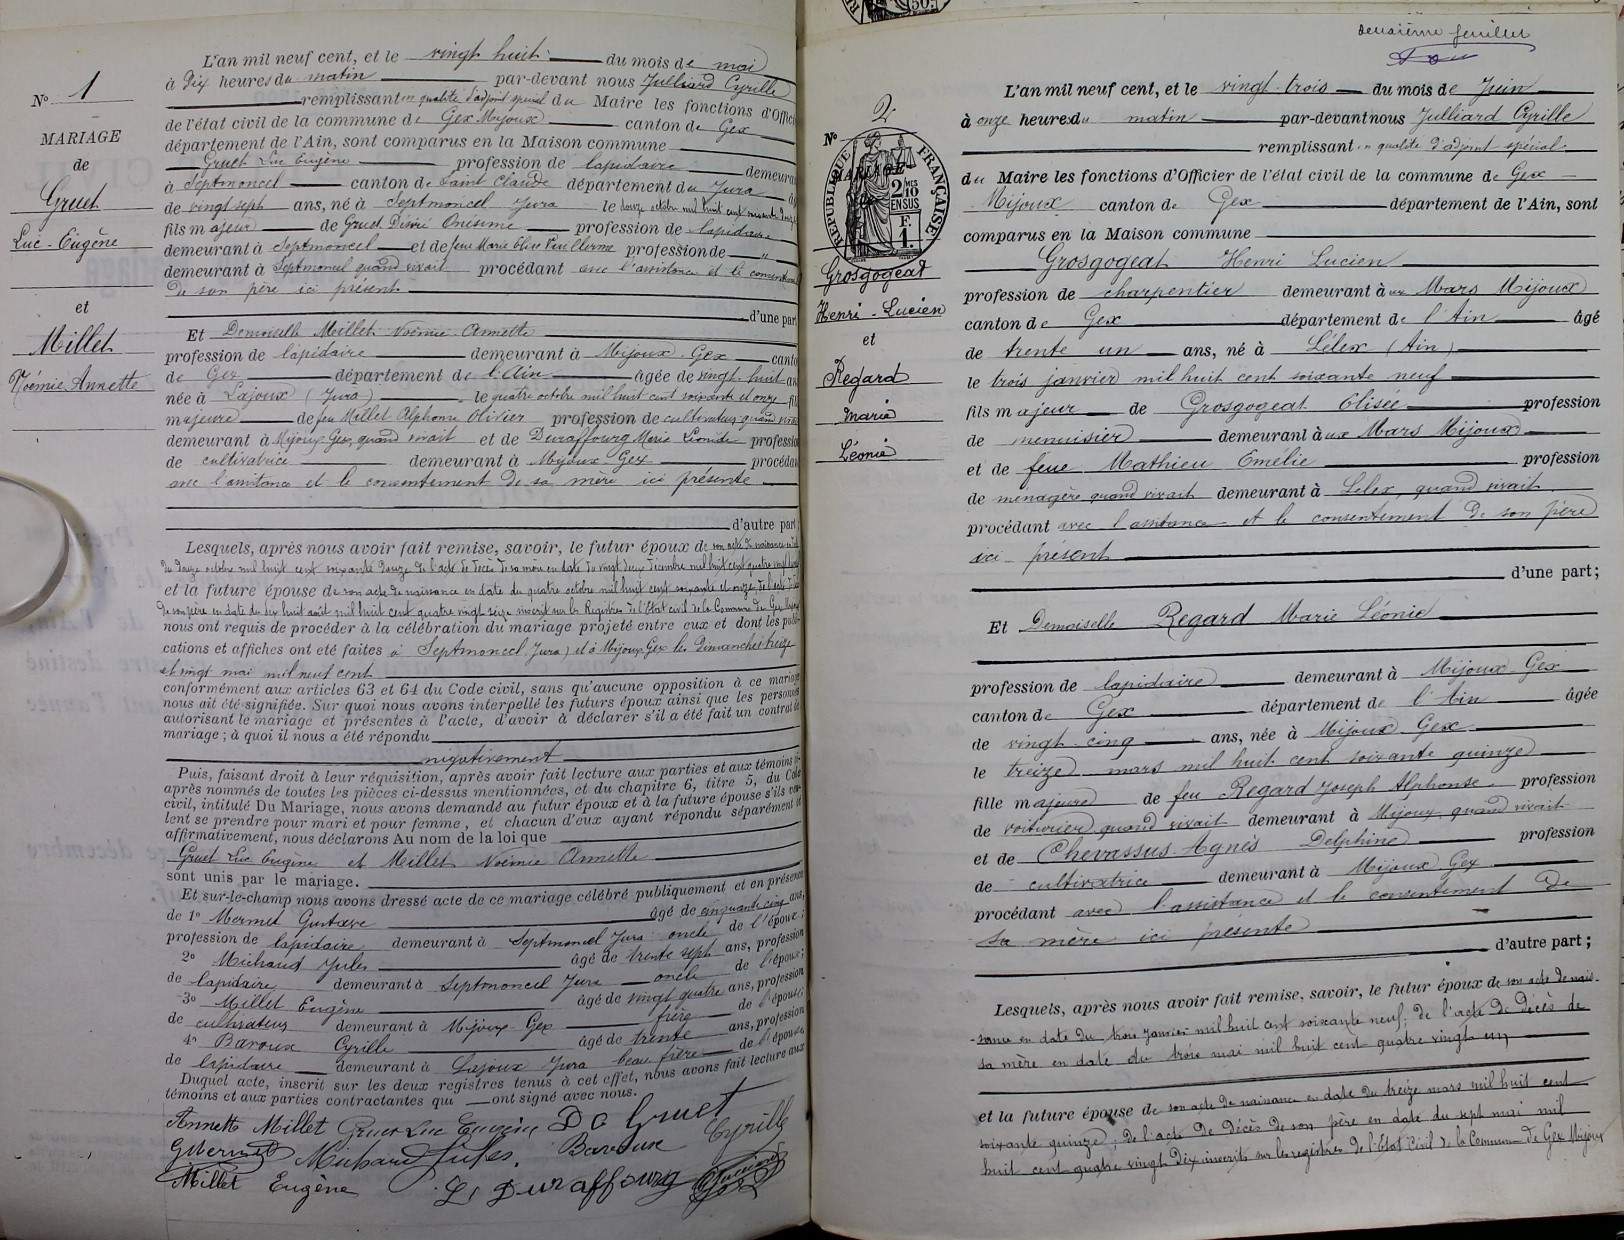 N° 1
MARIAGE
de
Gruet
Luc-Eugène
et
Millet
Noémie Annette
L'an mil neuf cent, et le vingt huit du mois de mai
à Dix heures du matin par-devant nous Julliard Cyrille
remplissant en qualité d'adjoint spécial du Maire les fonctions d'Offici
de l'état civil de la commune de Gex Mijoux canton de Gex
département de l'Ain, sont comparus en la Maison commune
Gruet Luc Eugène profession de lapidaire demeurant
à Septmoncel canton de Saint Claude département du Jura
de vingt sept ans, né à Septmoncel Jura le douze octobre mil huit cent soixante douze
fils majeur de Gruet Désiré Onésime profession de lapidaire
demeurant à Septmoncel et de feue Marie Elise Vuillerme profession de "
demeurant à Septmoncel quand vivait procédant avec l'assistance et le consentement
de son père ici présent
d'une part
Et Demoiselle Millet Noémie Annette
profession de lapidaire demeurant à Mijoux-Gex canto
de Gex département de l'Ain âgée de vingt-huit ans
née à Lajoux (Jura) le quatre octobre mil huit cent soixante et onze fil
majeure de feu Millet Alphonse Olivier profession de cultivateur quand vivait
demeurant à Mijoux-Gex quand vivait et de Duraffourg Marie profession
de cultivatrice demeurant à Mijoux-Gex procédan
avec l'assistance et le consentement de sa mère ici présente
d'autre part;
Lesquels, après nous avoir fait remise, savoir, le futur époux de son acte de naissance en date
du douze octobre mil huit cent soixante douze de l'acte de décès de sa mère en date du vingt deux décembre mil huit cent quatre vingt
et la future épouse de son acte de naissance en date du quatre octobre mil huit cent soixante et onze, de l'acte de décès
de son père en date du dix huit août mil huit cent quatre vingt seize inscrit sur les Registres de l'Etat civil de la Commune de Gex Mijoux
nous ont requis de procéder à la célébration du mariage projeté entre eux et dont les publi-
cations et affiches ont été faites à Septmoncel (Jura) et à Mijoux Gex les Dimanches treize
et vingt mai mil neuf cent
conformément aux articles 63 et 64 du Code civil, sans qu'aucune opposition à ce mariage
nous ait été signifiée. Sur quoi nous avons interpellé les futurs époux ainsi que les personnes
autorisant le mariage et présentes à l'acte, d'avoir à déclarer s'il a été fait un contrat de
mariage; à quoi il nous a été répondu
négativement
Puis, faisant droit à leur réquisition, après avoir fait lecture aux parties et aux témoins ci-
après nommés de toutes les pièces ci-dessus mentionnées, et du chapitre 6, titre 5, du Code
civil, intitulé Du Mariage, nous avons demandé au futur époux et à la future épouse s'ils veu-
lent se prendre pour mari et pour femme, et chacun d'eux ayant répondu séparément et
affirmativement, nous déclarons Au nom de la loi que
Gruet Luc Eugène et Millet Noémie Annette
sont unis par le mariage.
Et sur-le-champ nous avons dressé acte de ce mariage célébré publiquement et en présence
de 1° Mermet Gustave âgé de cinquante cinq ans,
profession de lapidaire demeurant à Septmoncel Jura oncle de l'époux;
2° Michaud Jules âgé de trente sept ans, profession
de lapidaire demeurant à Septmoncel Jura oncle de l'époux;
3° Millet Eugène âgé de vingt quatre ans, profession
de cultivateur demeurant à Mijoux-Gex frère de l'épouse;
4° Baroux Cyrille âgé de trente ans, profession
de lapidaire demeurant à Lajoux Jura beau frère de l'épouse
Duquel acte, inscrit sur les deux registres tenus à cet effet, nous avons fait lecture aux
témoins et aux parties contractantes qui ont signé avec nous.
Annette Millet Gruet Luc Eugène D O Gruet
Michaud Jules. Baroux Cyrille
Millet Eugène L Duraffourg
deuxième feuillet
N° 2
MARIAGE
RÉPUBLIQUE FRANÇAISE
2 MES 10 EN SUS
F. 1.
Grosgogeat
Henri-Lucien
et
Regard
Maria
Léonie
L'an mil neuf cent, et le vingt-trois du mois de Juin
à onze heures du matin par-devant nous Julliard Cyrille
remplissant en qualité d'adjoint spécial
du Maire les fonctions d'Officier de l'état civil de la commune de Gex
Mijoux canton de Gex département de l'Ain, sont
comparus en la Maison commune
Grosgogeat Henri Lucien
profession de charpentier demeurant aux Mars Mijoux
canton de Gex département de l'Ain âgé
de trente un ans, né à Lélex (Ain)
le trois janvier mil huit cent soixante neuf
fils majeur de Grosgogeat Elisée profession
de menuisier demeurant aux Mars Mijoux
et de feue Mathieu Emélie profession
de ménagère quand vivait demeurant à Lelex, quand vivait
procédant avec l'assistance et le consentement de son père
ici présent
d'une part;
Et Demoiselle Regard Marie Léonie
profession de lapidaire demeurant à Mijoux-Gex
canton de Gex département de l'Ain âgée
de vingt-cinq ans, née à Mijoux-Gex
le treize mars mil huit cent soixante quinze
fille majeure de feu Regard Joseph Alphonse profession
de voiturier quand vivait demeurant à Mijoux, quand vivait
et de Chevassus Agnès Delphine profession
de cultivatrice demeurant à Mijoux Gex
procédant avec l'assistance et le consentement de
sa mère ici présente
d'autre part;
Lesquels, après nous avoir fait remise, savoir, le futur époux de son acte de nais-
-sance en date du trois janvier mil huit cent soixante neuf; de l'acte de décès de
sa mère en date du trois mai mil huit cent quatre vingt un
et la future épouse de son acte de naissance en date du treize mars mil huit cent
soixante quinze; de l'acte de décès de son père en date du sept mai mil
huit cent quatre vingt dix inscrits sur les registres de l'Etat civil de la Commune de Gex Mijoux